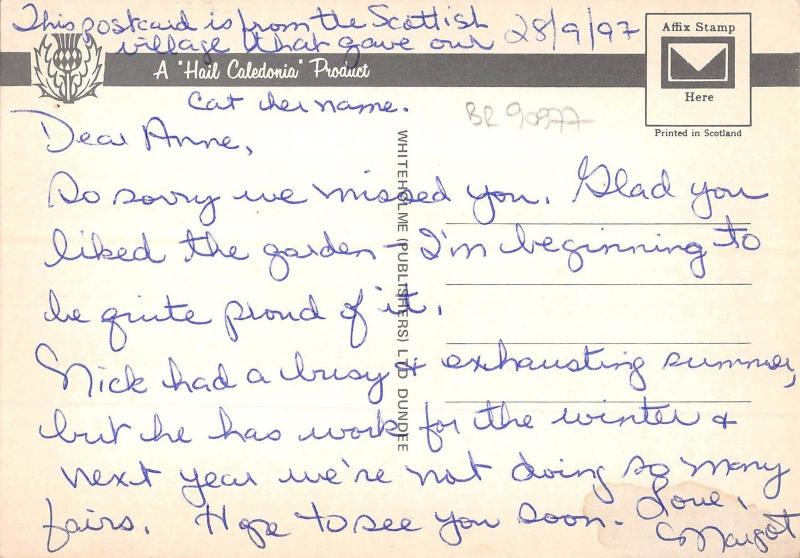 This postcard is from the Scottish
village that gave our 28/9/97
cat her name.
A "Hail Caledonia" Product
Affix Stamp
Here
Printed in Scotland
BR 90977
WHITEHOLME (PUBLISHERS) LTD DUNDEE
Dear Anne,
So sorry we missed you. Glad you
liked the garden - I'm beginning to
be quite proud of it.
Nick had a busy & exhausting summer,
but he has work for the winter &
next year we're not doing so many
fairs. Hope to see you soon. Love,
Margot